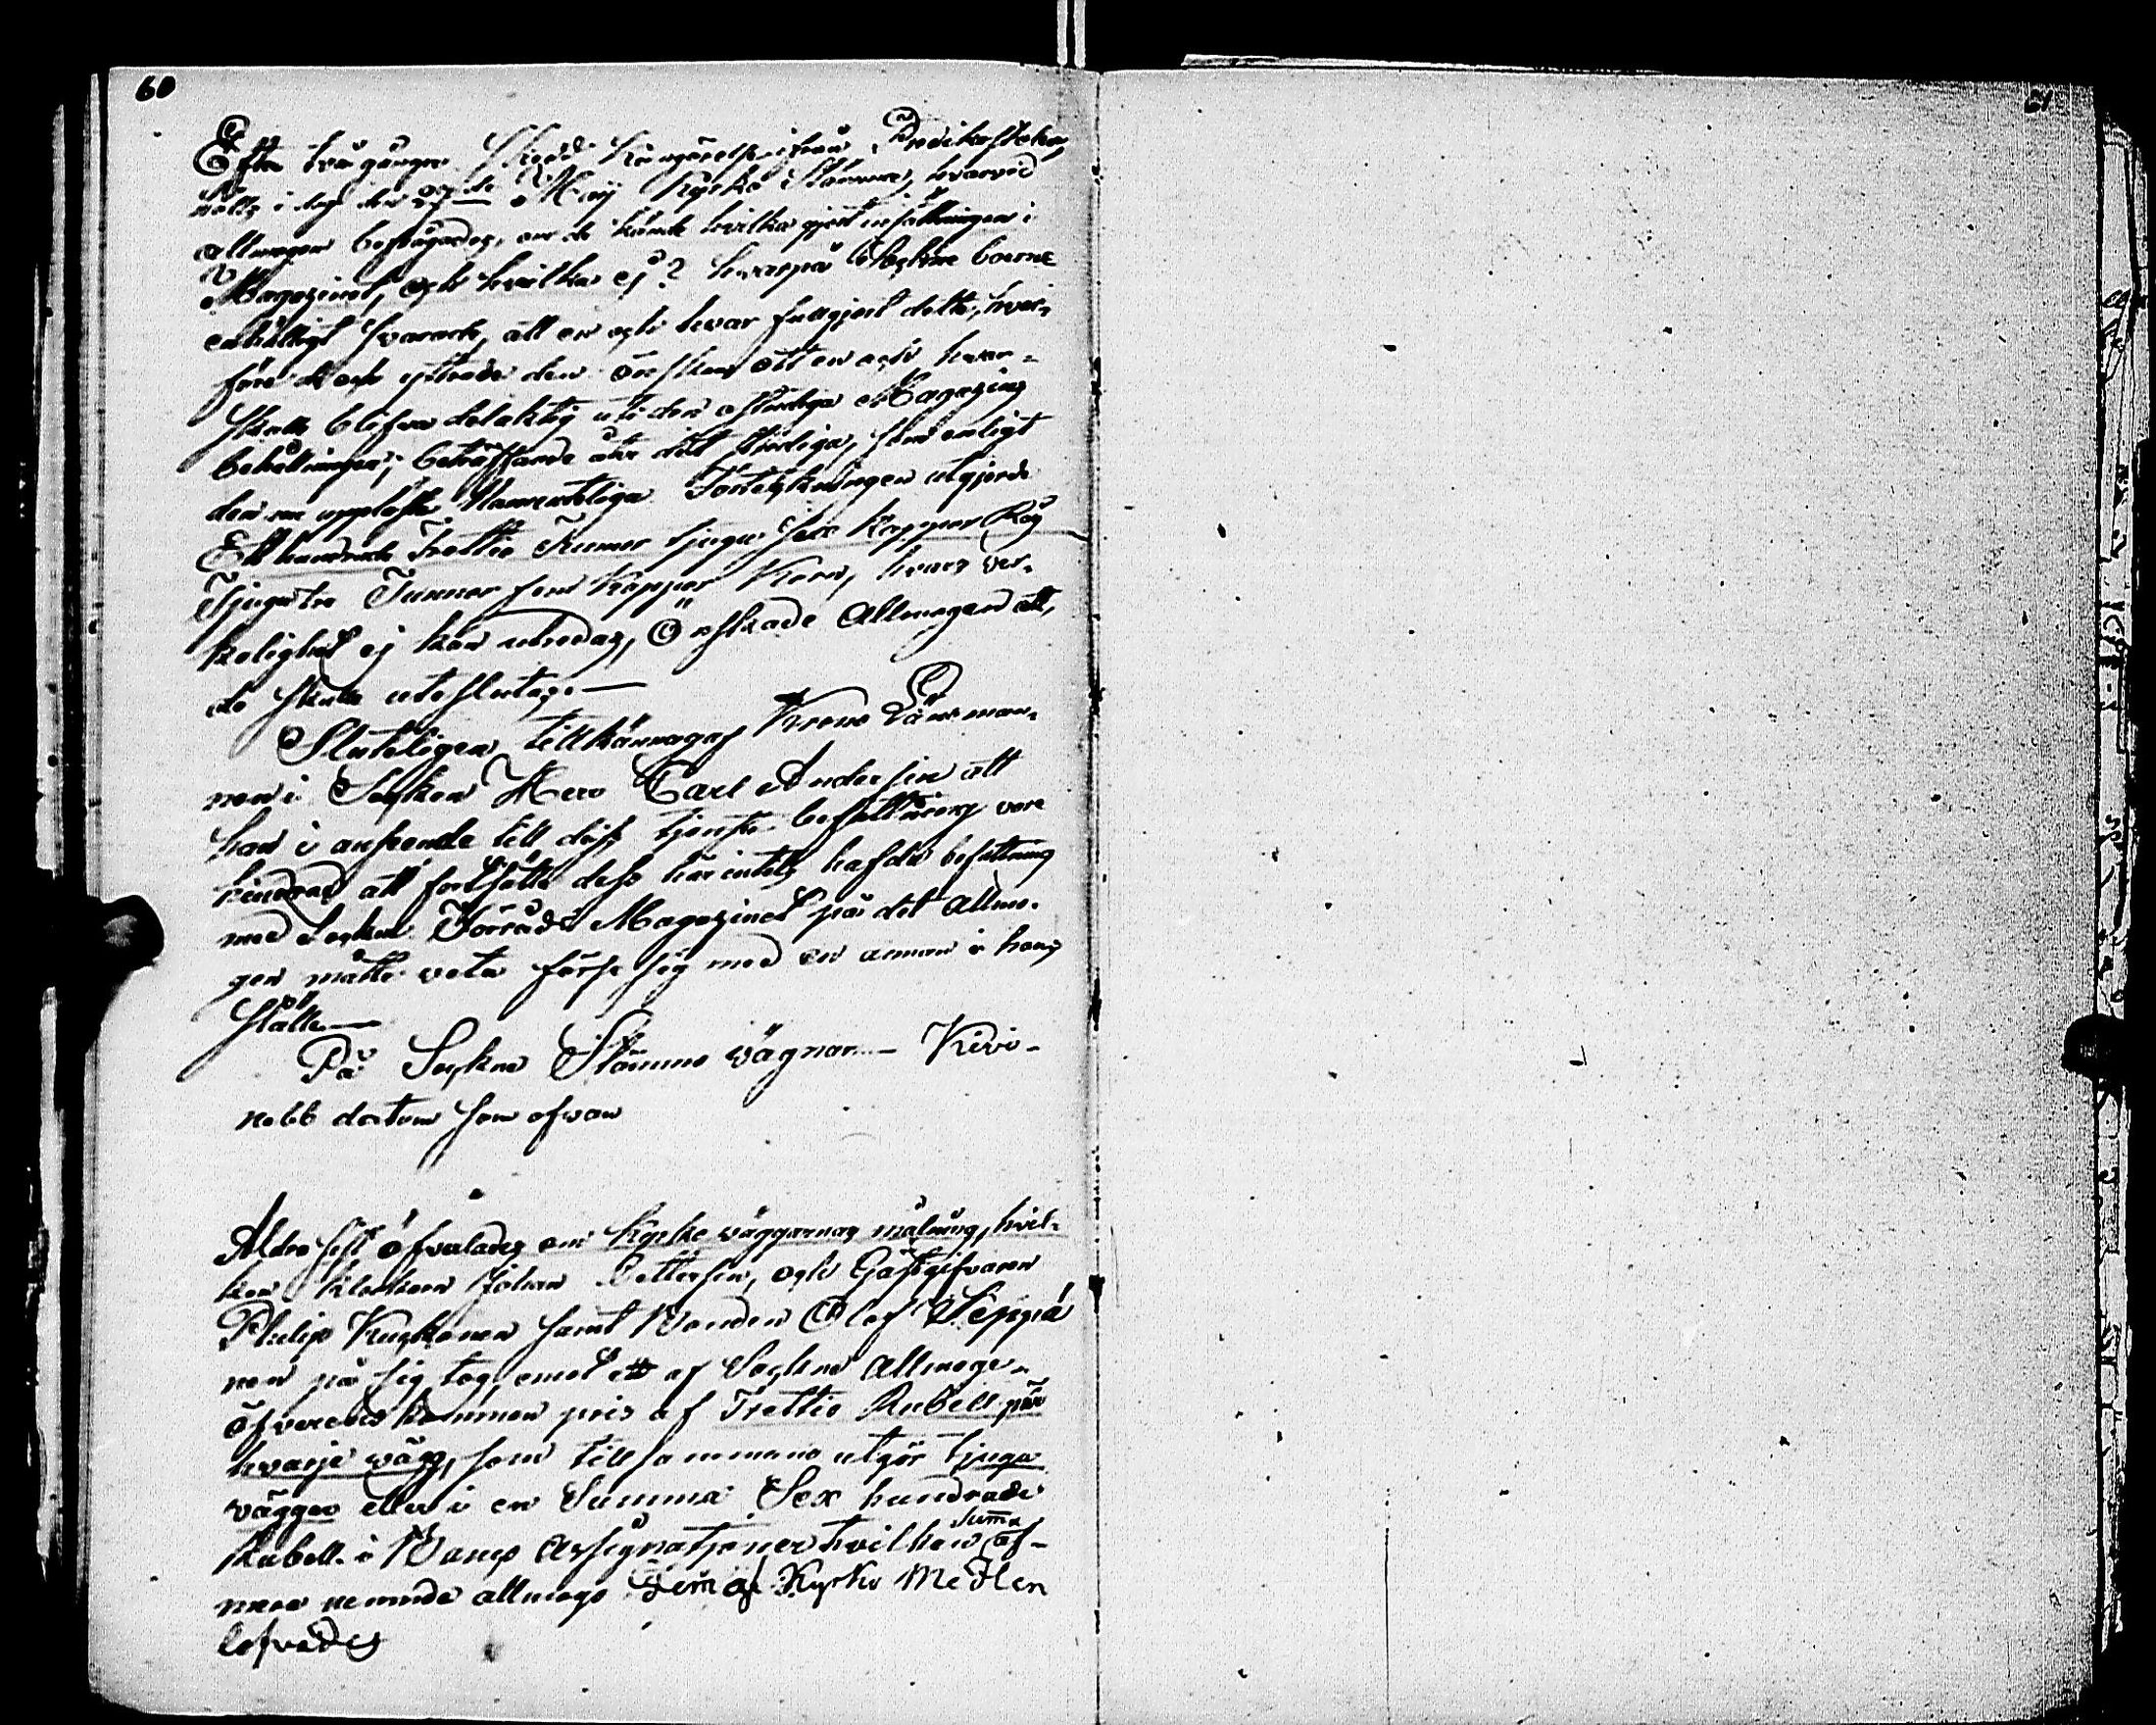 60
61
Efter två gånger skedd kungörelse ifrån Predikostolen,
hölls i dag den 27de Maij Kyrko Stämma, hvarvid
allmogen befrågades, om de kände hvilka gjort insättningen i
Magazinet, och hvilka ej? hvarpå Sockne boerne
enhälligt svarade, att en och hvar fullgjort detta, hvar-
före de ock yttrade den önskan att en och hvar
skulle blifva delaktig uti den ostridiga Magazins
behållningen; beträffande åter det stridiga, som enligt
den nu uppläste Namneteliga Förteckningen utgjorde
Ett hundrade Trettio Tunnor tjugu sex Kappor Råg
Tjugutre Tunnor fem Kappor Korn, hvars ver-
kelighet ej kan utredas, Önskade Allmogen att,
de skulle uteslutas.—
Sluteligen tillkännagaf Krono Länsman-
nen i Socknen Herr Carl Andersin att
han i anseende till dess tjenste befattning vore
hindrad att fortsätta dess här intills hafde befattning
med Sockne Förråds Magazinet på det Allmo-
gen måtte veta förse sig med en annan i hans
ställe—
På Sockne Stämmo vägnar.— Kivi-
nebb datum som ofvan
Aldra sist öfverlades om Kyrko väggarnas målning, hvil-
ken Klockarn Johan Pettersin, och Gästgifvaren
Philip Kuckonen samt Bonden Olof Seppä
nen på sig tog, emot ett af Sockne Allmoge
öfverens kommen pris af Trettio Rubell på
hvarje vägg, som tillsammans utgör tjugu
väggar eller i en Summa Sex hundrade
Rubell. i Banco Assignatjoner hvilken summa af-
nämnde allmoge af Kyrko Medlen
lofvades